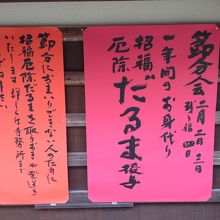 節分会 二月二日三日
一年間のお身代り
招福
厄除
だるま授与
節分におまいりできない人のために
招福厄除だるまを取りおきや発送も
いたします 詳しくは寺務所まで